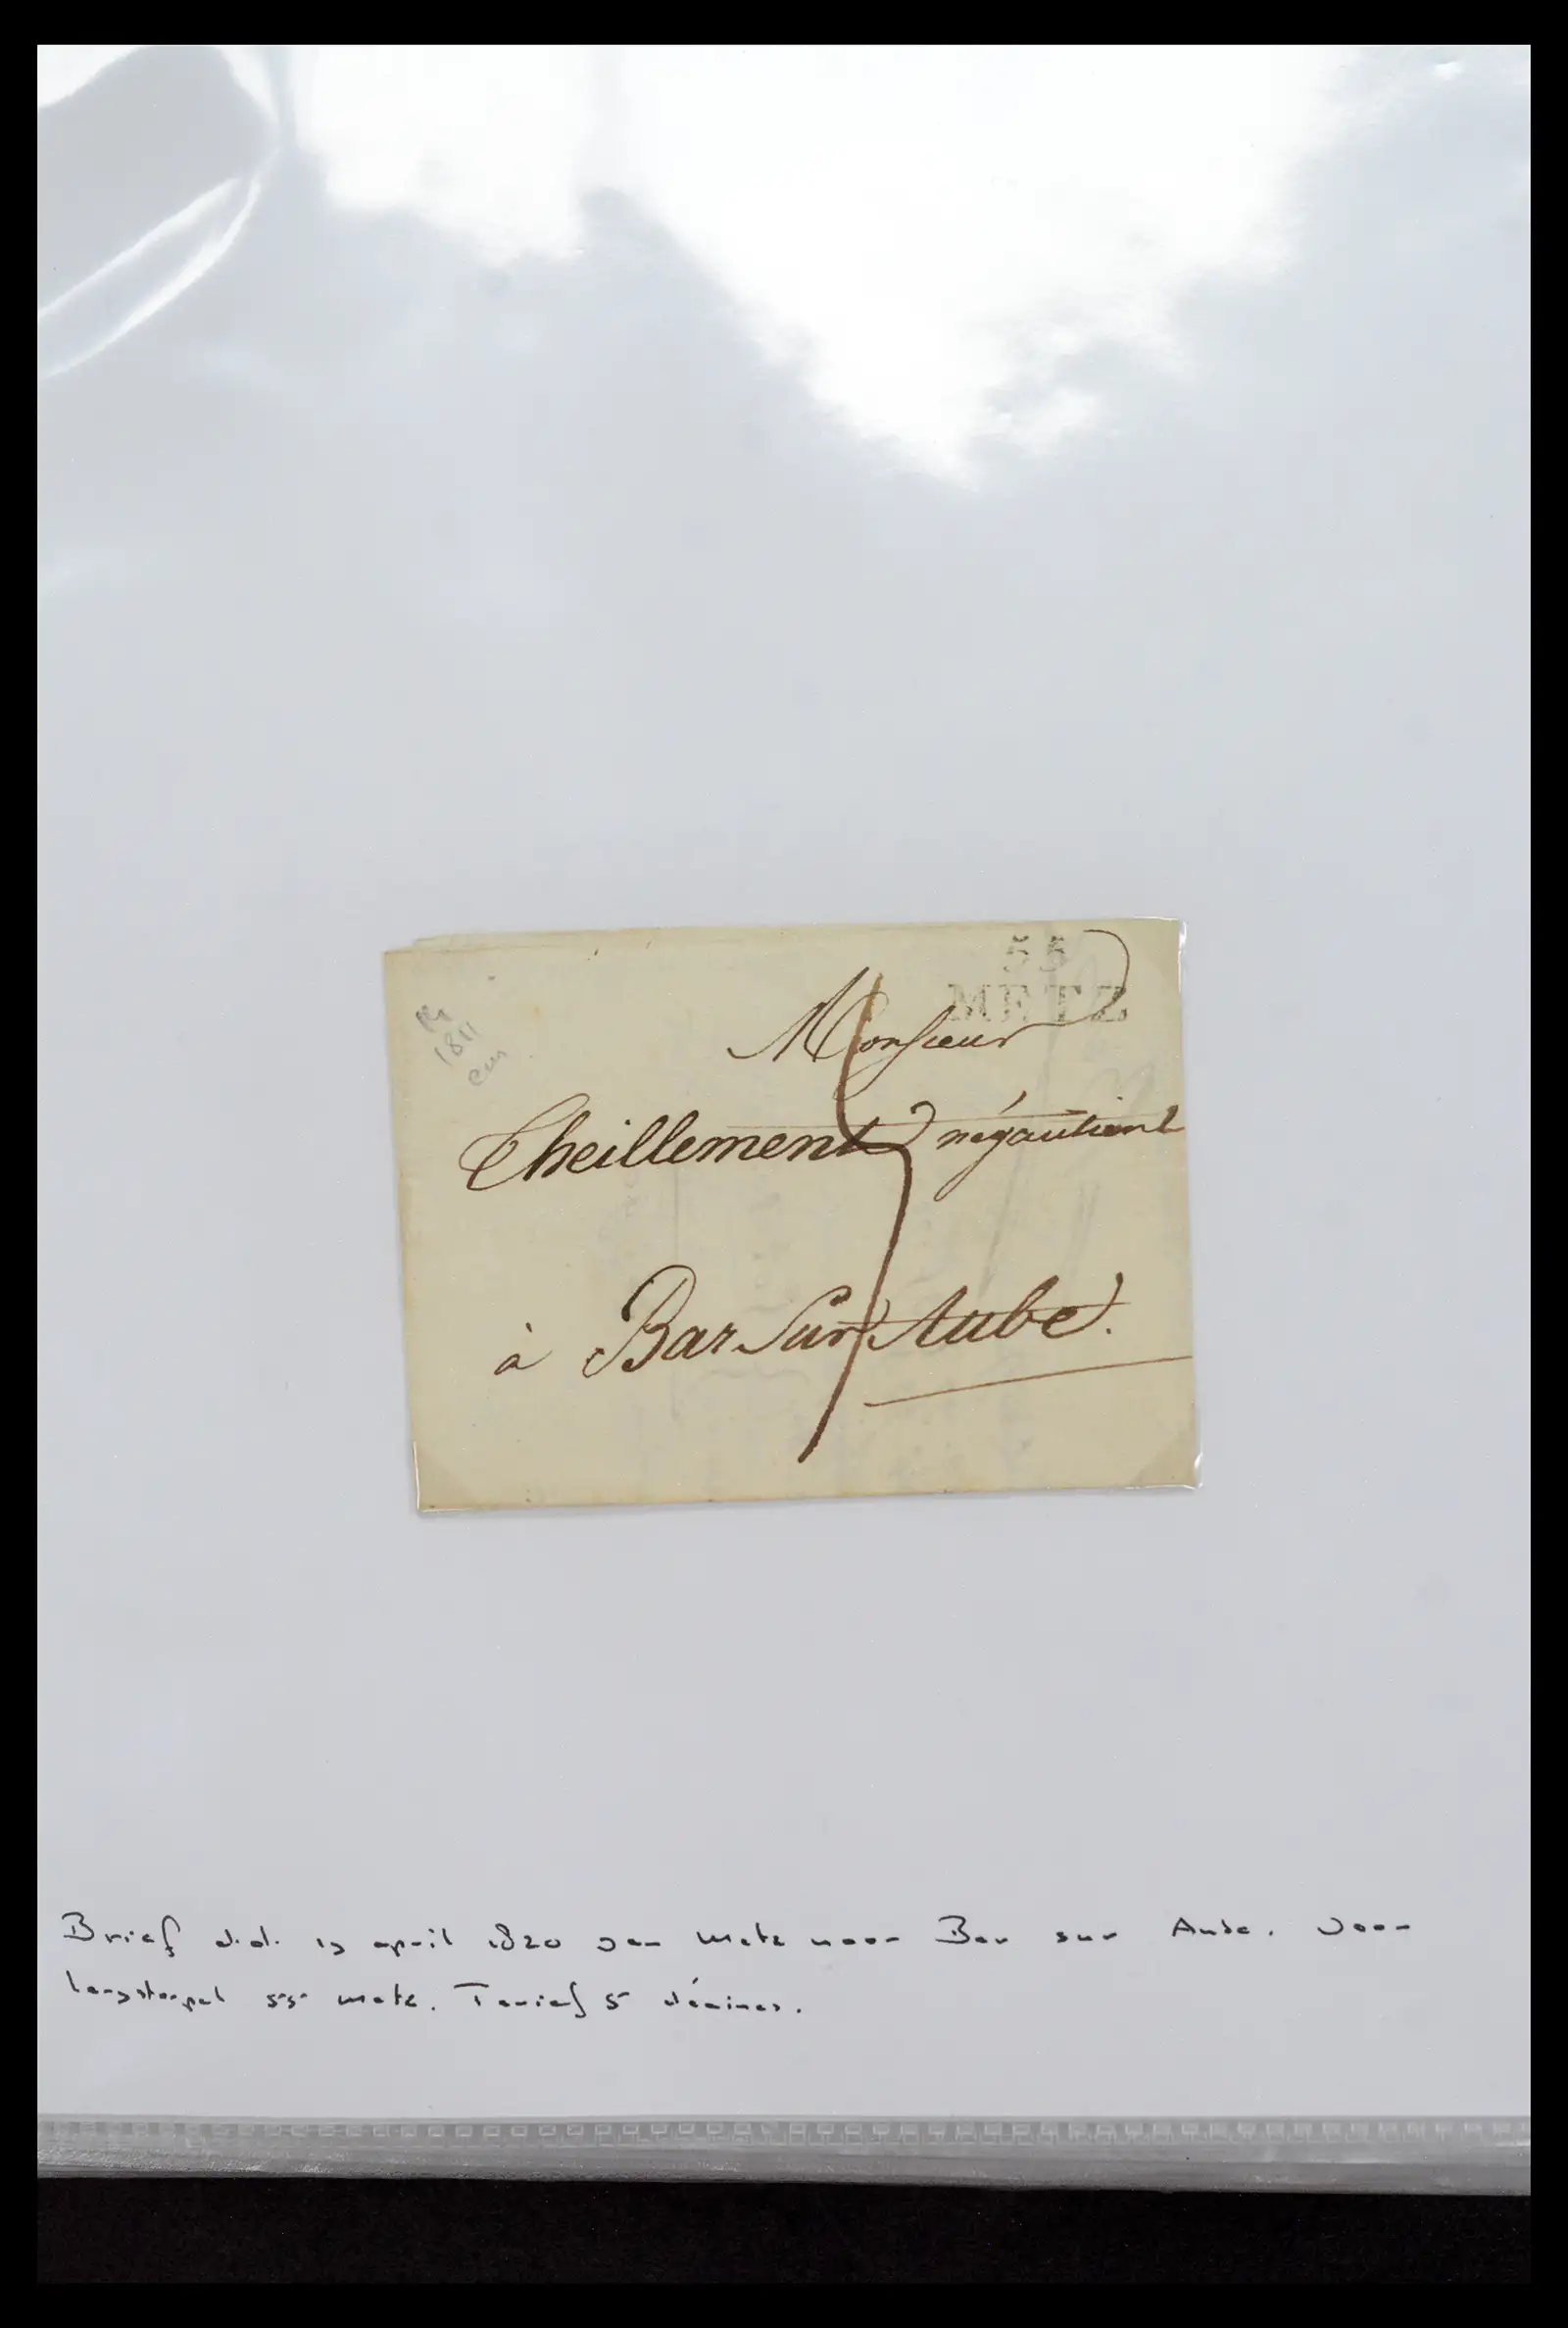 55
METZ
Monsieur
1811
Theillement négautient
à Bar Sur Aube.
5
Brief d.d. april 1820 van Metz naar Bar sur Aube. Voor
langstempel 55 Metz. Tarief 5 décimes.